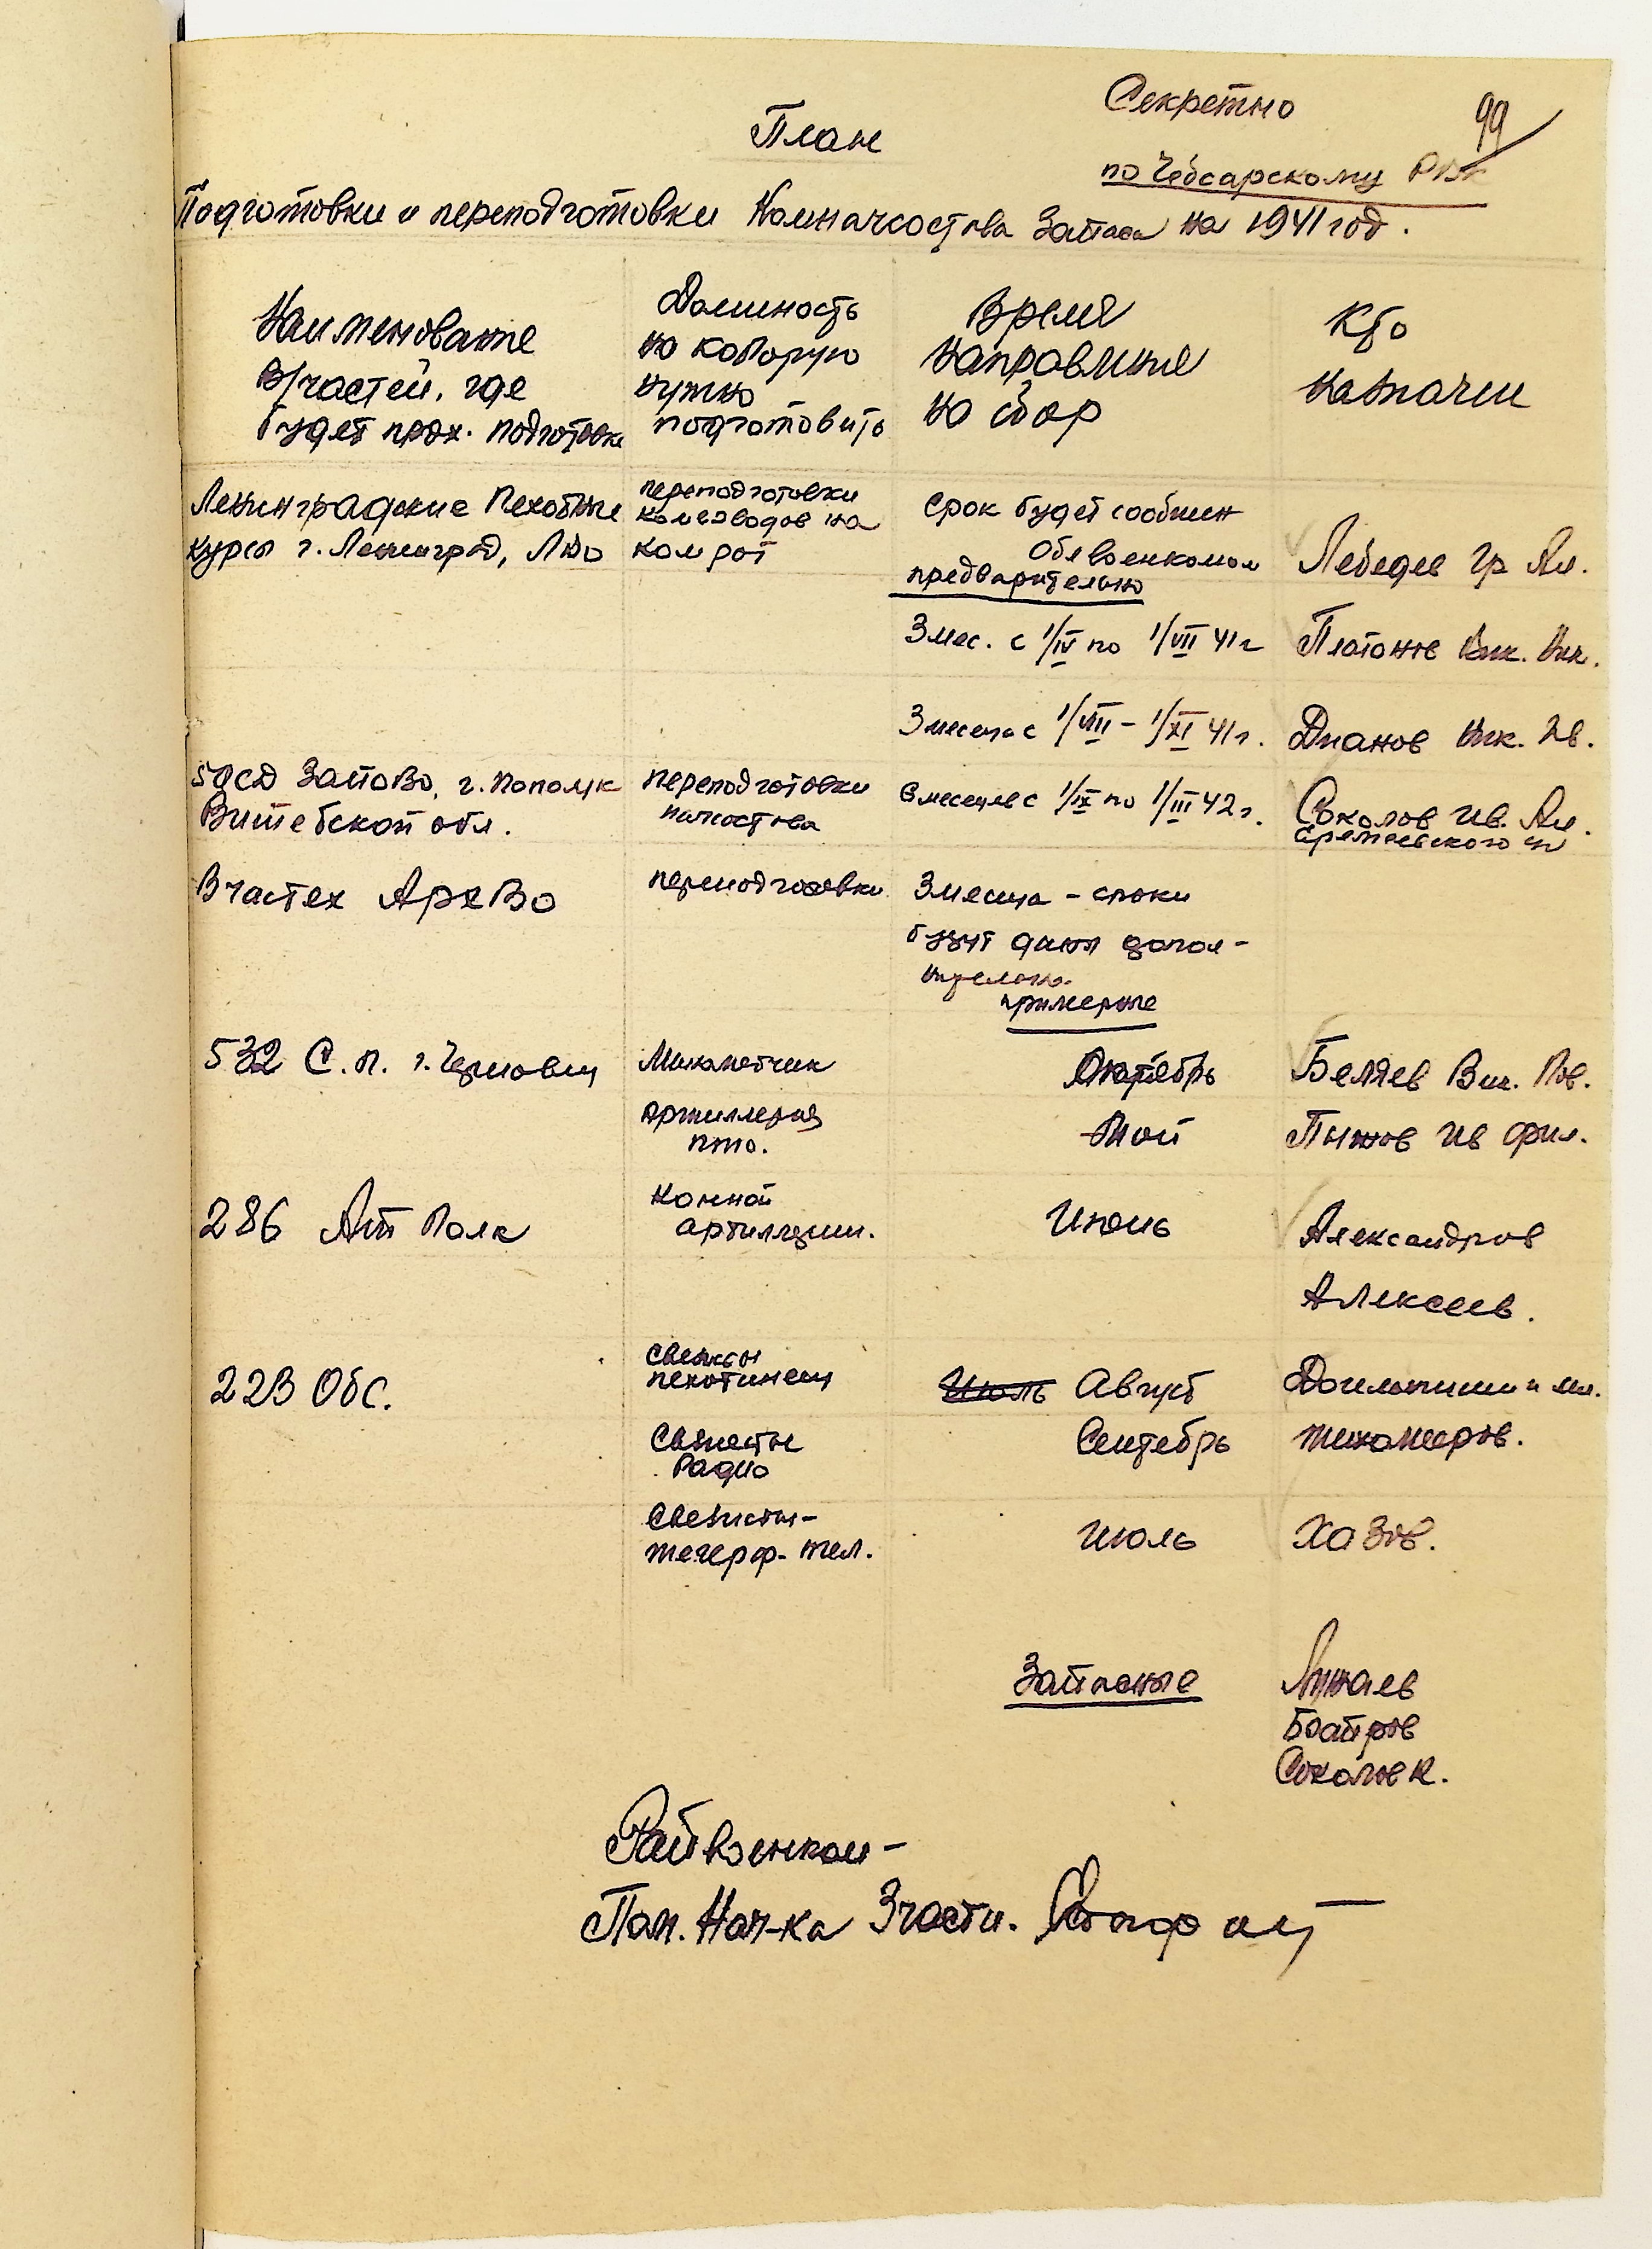 Секретно
99
План
по Чебсарскому РВК
Подготовки и переподготовки Комначсостава Запаса на 1941 год.
Наименование
В/частей, где
будет прох. подготовка
Должность
на которую
нужно
подготовить
Время
направления
на сбор
Кто
назначен
Ленинградские Пехотные
курсы г. Ленинград, ЛВО
переподготовки
комвзводов на
ком рот
Срок будет сообщен
Облвоенкомом
предварительно
Лебедев Гр Ал.
3 мес. с 1/IV по 1/VII 41 г
Платонов Ник. Ник.
3 месяца с 1/VIII - 1/XI 41 г.
Дианов Ник. Ив.
50 сд ЗапОВО, г. Полоцк
Витебской обл.
переподготовки
начсостава
6 месяцев с 1/IX по 1/III 42 г.
Соколов Ив. Ал.
В частех АрхВО
переподготовки
3 месяца - сроки
будут даны допол-
нительно.
примерные
532 С. п. г. Череповец
Минометчик
Октябрь
Беляев Вл. Пав.
Артиллерия
пто.
Май
Пыжов Ив Фил.
286 Арт Полк
Конной
артиллерии.
Июнь
Александров
Алексеев.
223 Обс.
Связисты
пехотинец
Июль Август
Связисты
Радио
Сентябрь
Тихомиров.
Связисты-
телегрф. тел.
Июль
Хазов.
Запасные
Боайров
Соколов К.
Райвоенком -
Пом. Нач-ка 3 части.